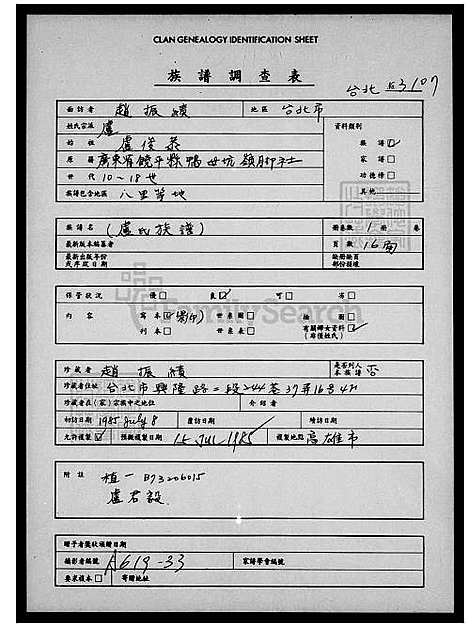 CLAN GENEALOGY IDENTIFICATION SHEET
族譜調查表
台北 3107
面訪者 趙振績 地區 台北市
姓氏宗派 盧 資料類別
始祖 盧俊 族譜☑
原籍 廣東省饒平縣 家譜□
世代 10~18世 功德榜□
族譜包含地區 八里等地 其他
族譜名 (盧氏族譜) 冊卷數 1冊 卷
最新版本編纂者 頁數 16面
最新出版年份
或序跋日期
缺冊缺頁
部份損壞
保管狀況 優□ 良☑ 可□ 劣□
FamilySearch
內容 寫本☑ 世系圖□ 插圖□
刊本□ 世系表□ 有關婦女資料☑
(非僅姓氏)
珍藏者 趙振績 是否列入
本族譜 否
珍藏者住址 台北市興隆路二段244巷37弄16号4F
珍藏者在(家)宗族中之地位 介紹者
初訪日期 1985 July 8 重訪日期 續訪日期
允許複製☑ 預擬複製日期 15 Jul 1985 複製地點 高雄市
附註 植一 B73206015
盧君毅
贈予者獎狀頒贈日期
攝影者編號 A619-33 家譜學會編號
要求複本□ 寄贈地址